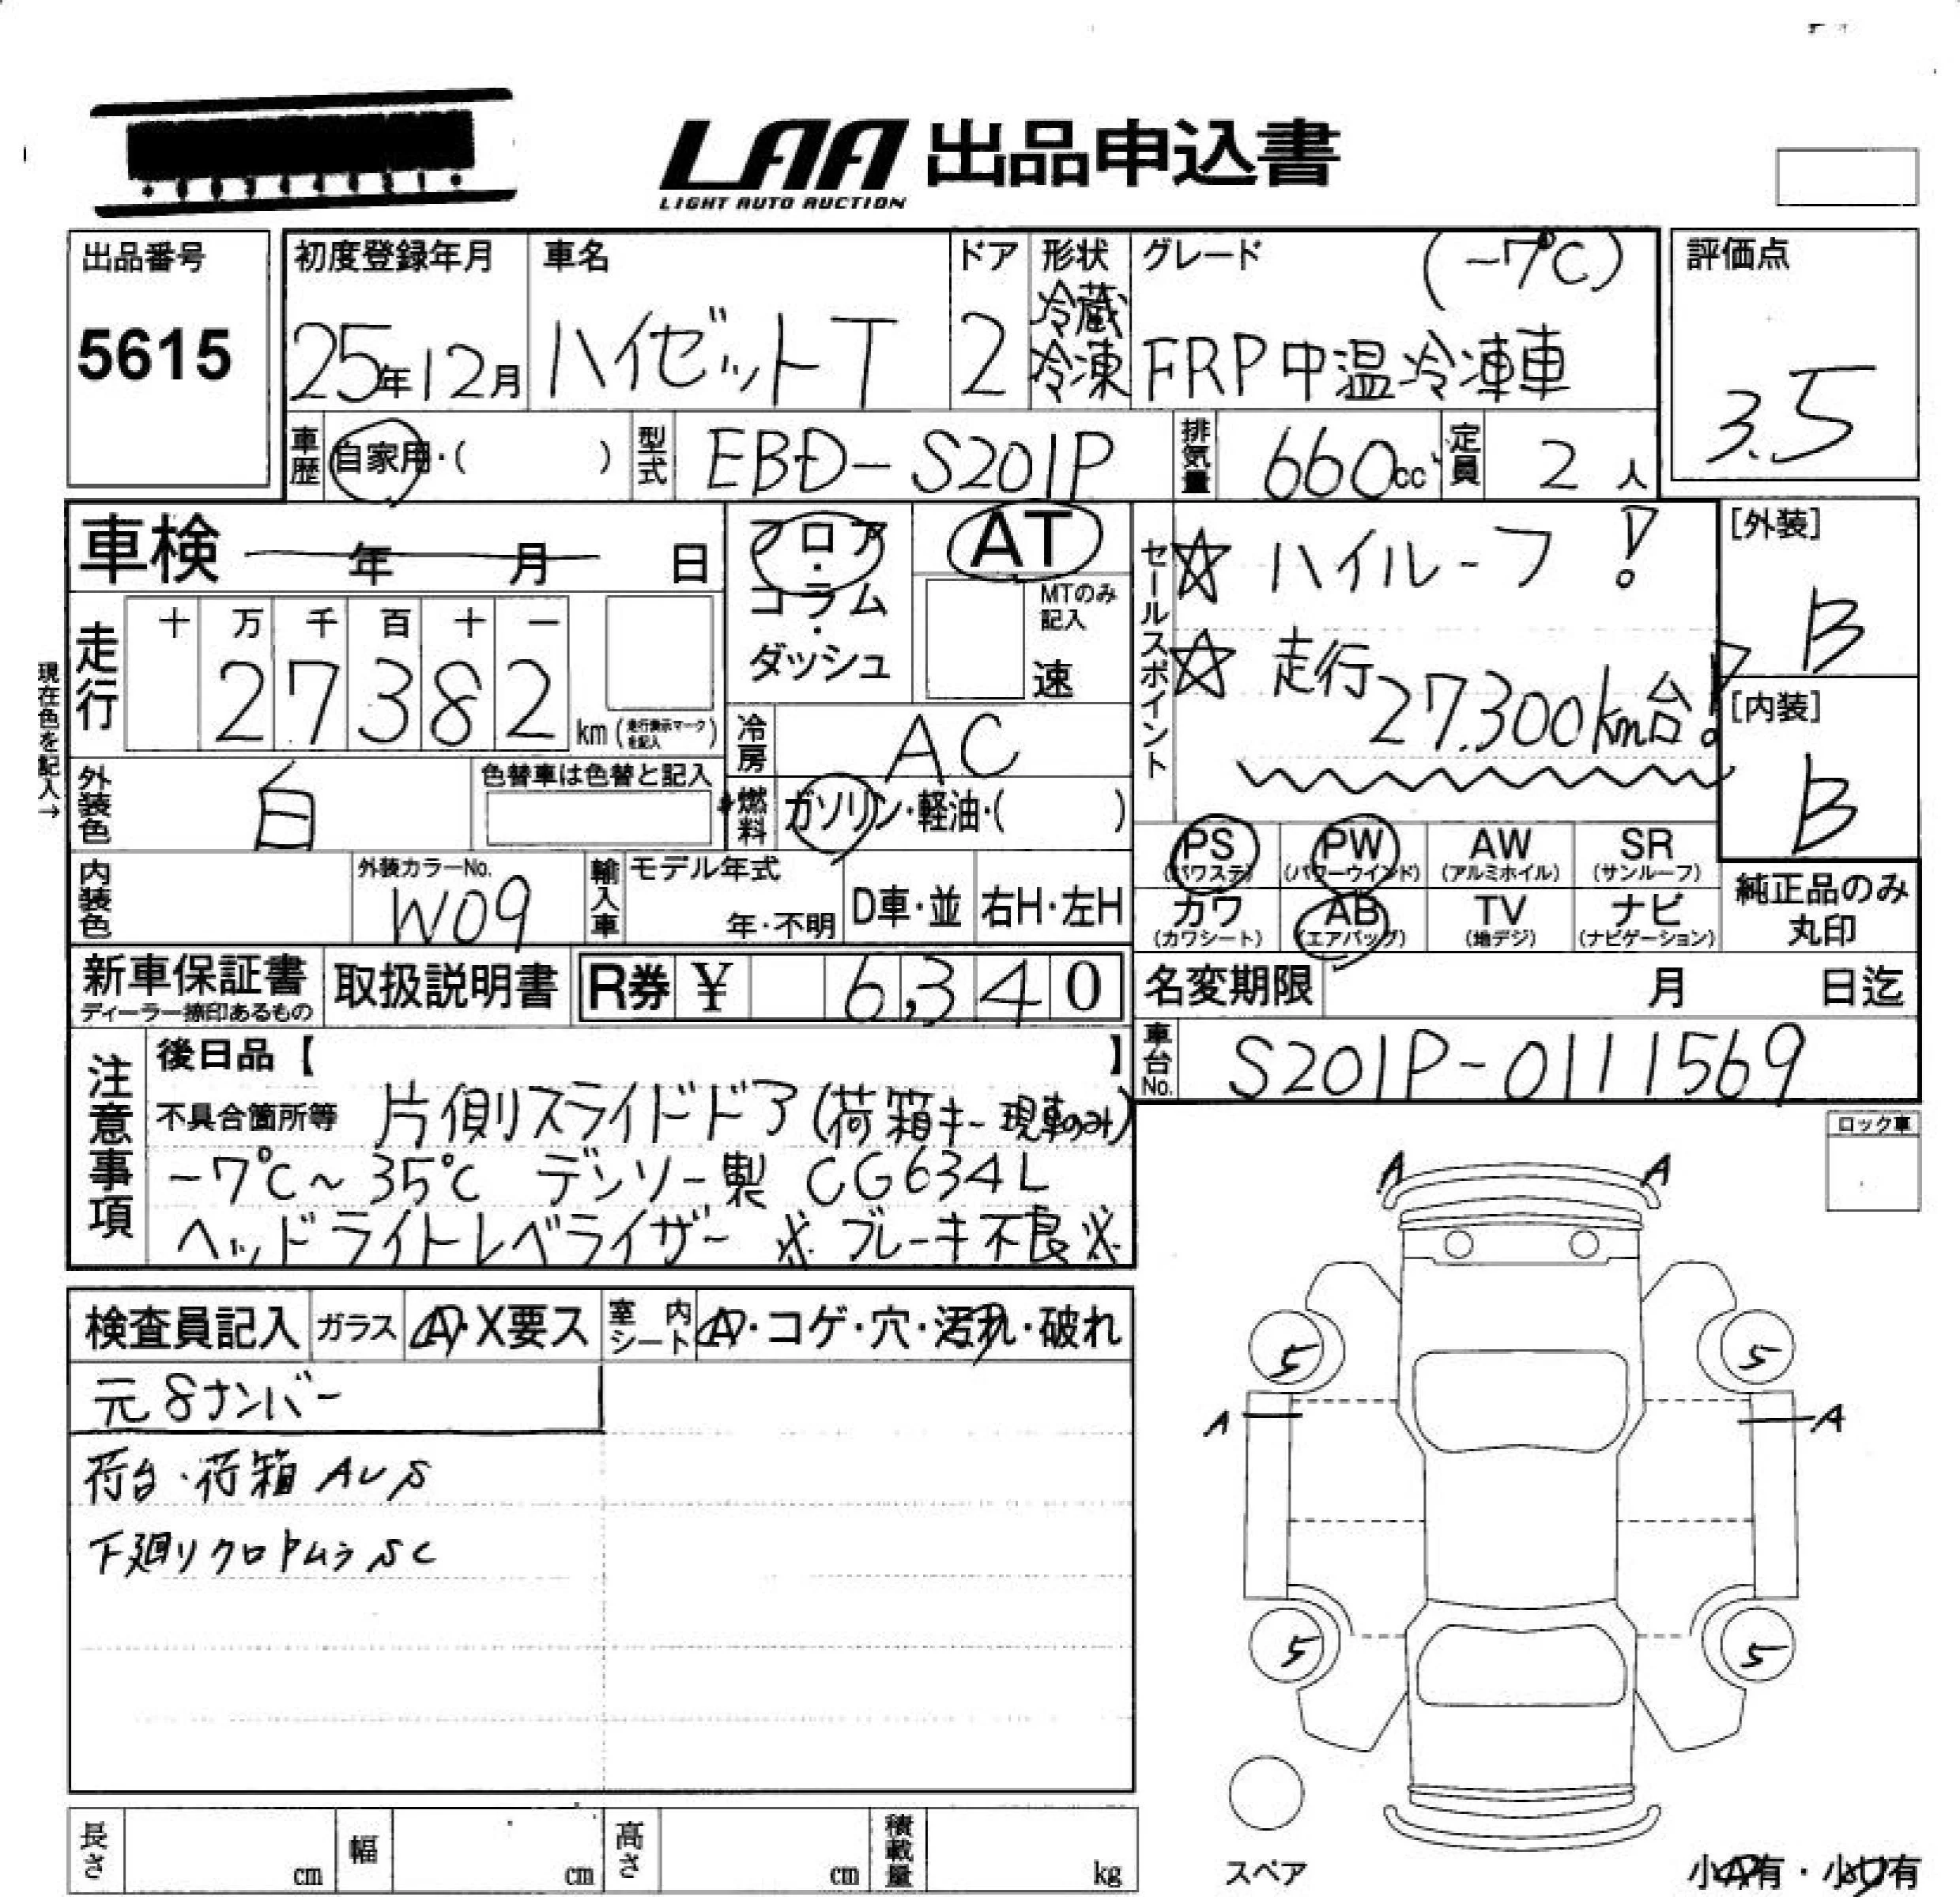 LAA 出品申込書
LIGHT AUTO AUCTION
出品番号
5615
初度登録年月
25年12月
車名
ハイゼットT
ドア
2
形状
冷蔵
冷凍
グレード (-7℃)
FRP中温冷凍車
評価点
3.5
車歴 自家用・( )
型式 EBD-S201P
排気量 660cc
定員 2人
車検 年 月 日
フロア・コラム・ダッシュ
AT
MTのみ記入
速
セールスポイント
☆ ハイルーフ!
☆ 走行27.300km台!
[外装]
B
[内装]
B
現在色を記入→
走行
十 万 千 百 十 一
27382
km(走行表示マークを記入)
冷房 AC
外装色 白
色替車は色替と記入
燃料 ガソリン・軽油・( )
PS (パワステ)
PW (パワーウインド)
AW (アルミホイル)
SR (サンルーフ)
カワ (カワシート)
AB (エアバッグ)
TV (地デジ)
ナビ (ナビゲーション)
純正品のみ
丸印
内装色
外装カラーNo.
W09
輸入車
モデル年式
年・不明
D車・並
右H・左H
新車保証書
ディーラー捺印あるもの
取扱説明書
R券 ¥ 6,340
名変期限 月 日迄
車台No. S201P-0111569
注意事項
後日品【 】
不具合箇所等 片側スライドドア(荷箱キー現車のみ)
-7℃~35℃ デンソー製 CG634L
ヘッドライトレベライザー ※ブレーキ不良※
ロック車
検査員記入
ガラス A・X要ス
室内シート A・コゲ・穴・汚れ・破れ
元8ナンバー
荷台・荷箱 AUS
下廻りクロアムラSC
A A
5 5
A A
5 5
スペア
小A有・小U有
長さ cm
幅 cm
高さ cm
積載量 kg